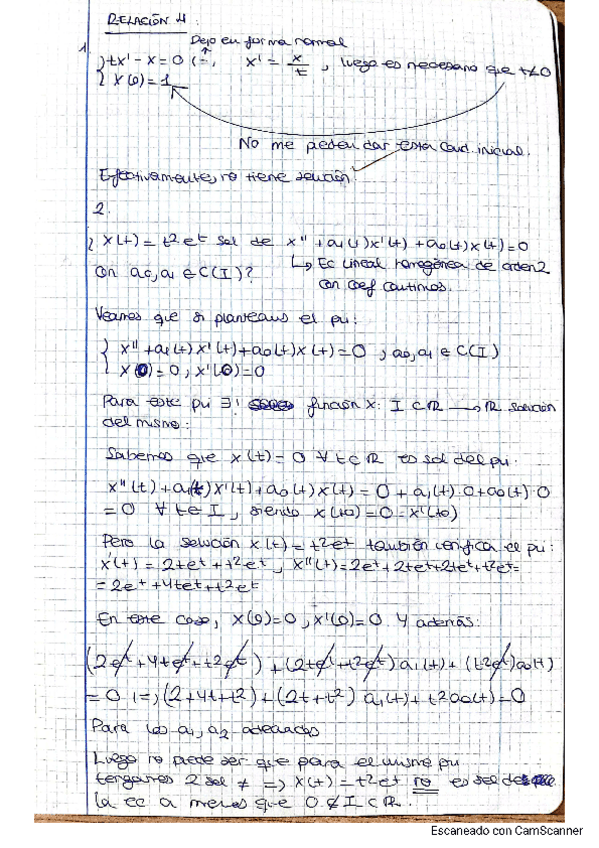 RELACIÓN 4:
Dejo en forma normal
1. { tx' - x = 0 (=, x' = x/t , luego es necesario que t≠0
{ x(0) = 1
No me pueden dar esta cond. inicial.
Efectivamente, no tiene solución.
2.
¿ x(t) = t²e^t sol de x'' + a₁(t)x'(t) + a₀(t)x(t) = 0
con a₀, a₁ ∈ C(I)? ↳ Ec lineal homogénea de orden 2
con coef continuos.
Veamos que si planteamos el pvi:
{ x'' + a₁(t)x'(t) + a₀(t)x(t) = 0 ; a₀, a₁ ∈ C(I)
{ x(0) = 0 ; x'(0) = 0
Para este pvi ∃! función x: I ⊂ R → R solución
del mismo:
Sabemos que x(t) = 0 ∀t∈R es sol del pvi.
x''(t) + a₁(t)x'(t) + a₀(t)x(t) = 0 + a₁(t)·0 + a₀(t)·0
= 0 ∀ t∈I , siendo x(t0) = 0 = x'(t0)
Pero la solución x(t) = t²e^t también verifica el pvi:
x'(t) = 2te^t + t²e^t , x''(t) = 2e^t + 2te^t + 2te^t + t²e^t =
= 2e^t + 4te^t + t²e^t
En este caso, x(0) = 0 , x'(0) = 0 y además:
(2e^t + 4te^t + t²e^t) + (2te^t + t²e^t)a₁(t) + (t²e^t)a₀(t)
= 0 (=, (2 + 4t + t²) + (2t + t²) a₁(t) + t²a₀(t) = 0
Para los a₁, a₂ adecuados
Luego no puede ser que para el mismo pvi
tengamos 2 sol ≠ => x(t) = t²e^t no es sol de
la ec a menos que 0 ∉ I ⊂ R.
Escaneado con CamScanner